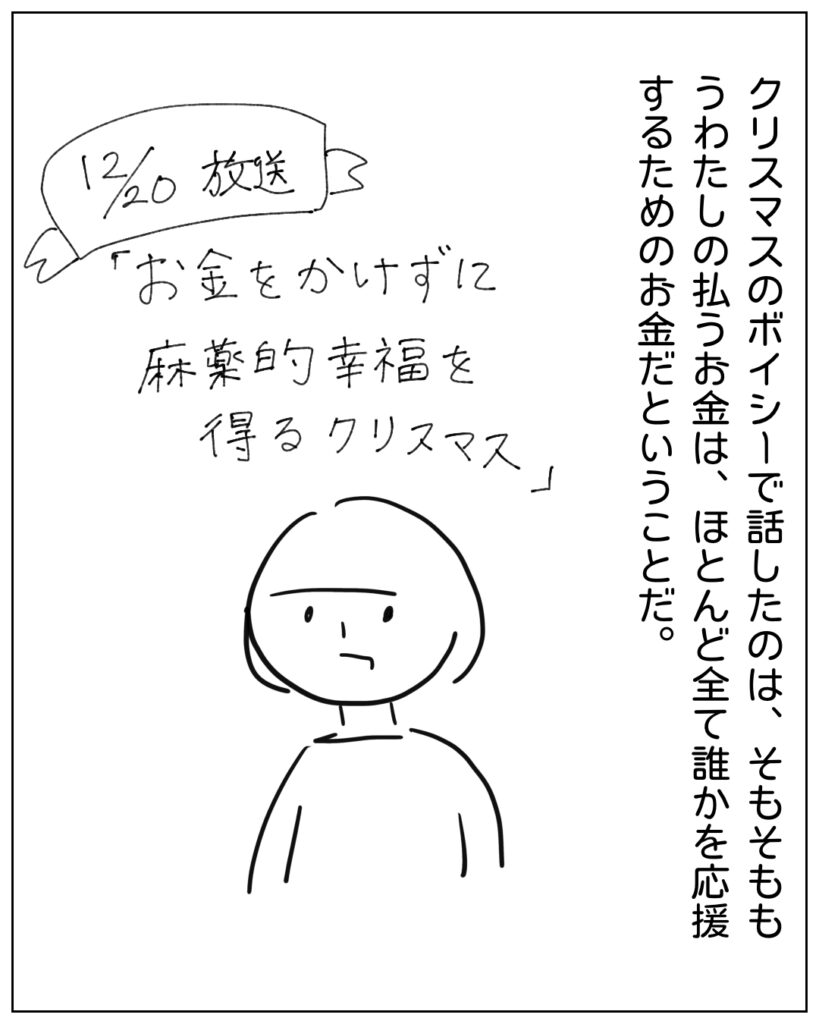 クリスマスのボイシーで話したのは、そもそもも
うわたしの払うお金は、ほとんど全て誰かを応援
するためのお金だということだ。
12/20 放送
「お金をかけずに
麻薬的幸福を
得るクリスマス」